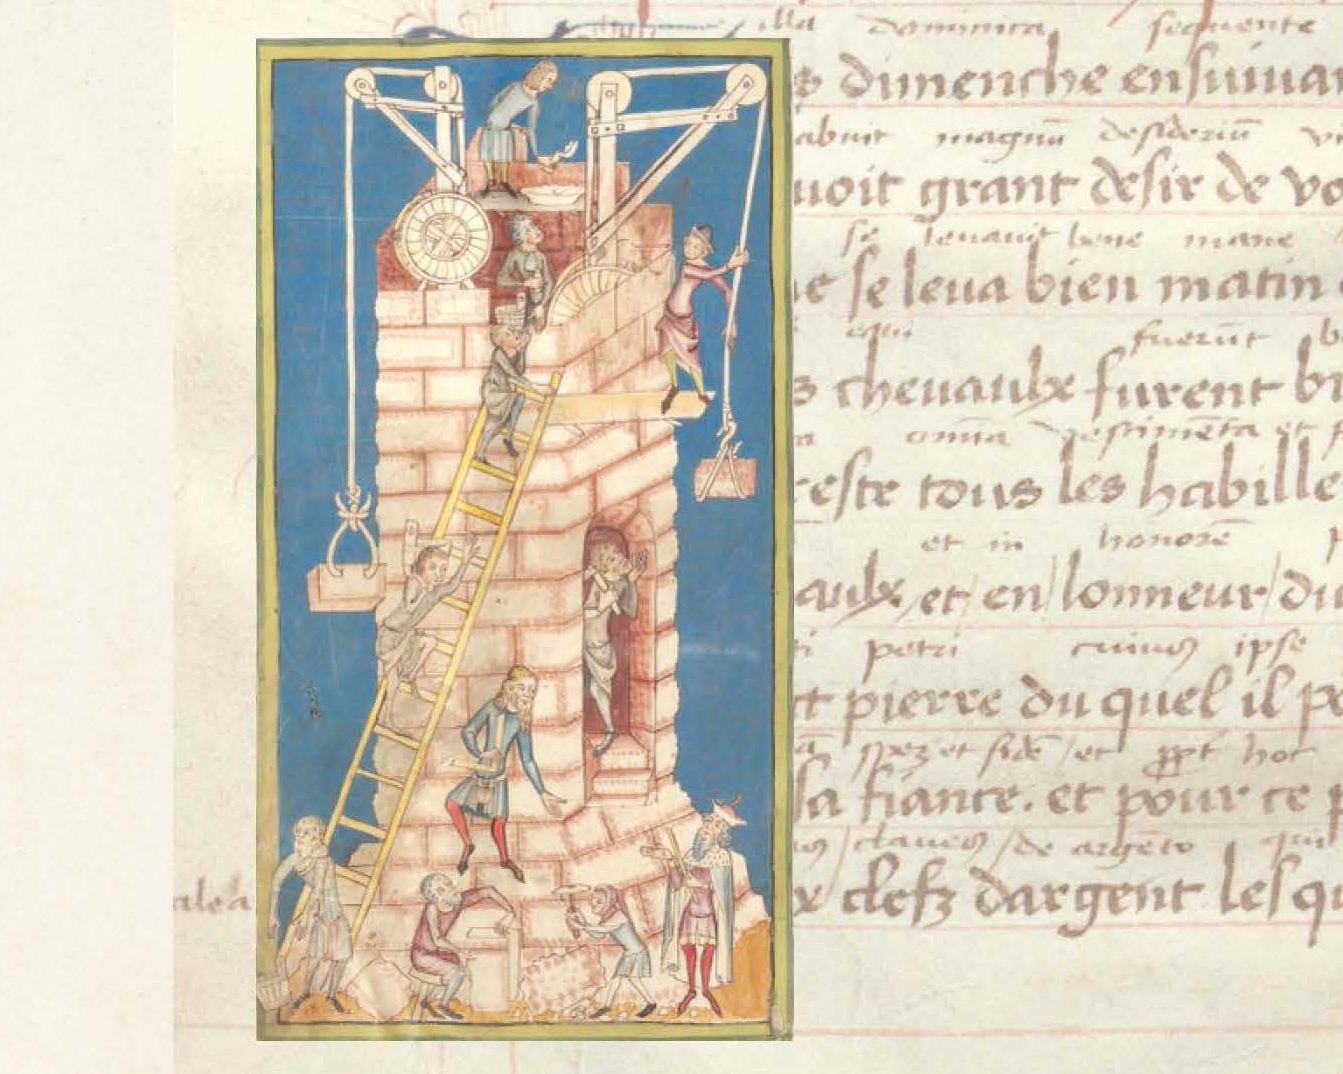 illa dominica sequente
s dimenche ensuiua
abuit magnū desideriū v
uoit grant desir de vo
se leuauit bene mane
e se leua bien matin
equi fuerūt b
s cheuaulx furent b
a omīa vestimēta et p
reste tous les habille
et in honorē p
aulx et en lonneur du
ti petri cuius ipse
t pierre du quel il p
spez et fidē et ꝓpt hoc
sa fiance. et pour ce
claues de argēto qui
x clefz dargent lesq